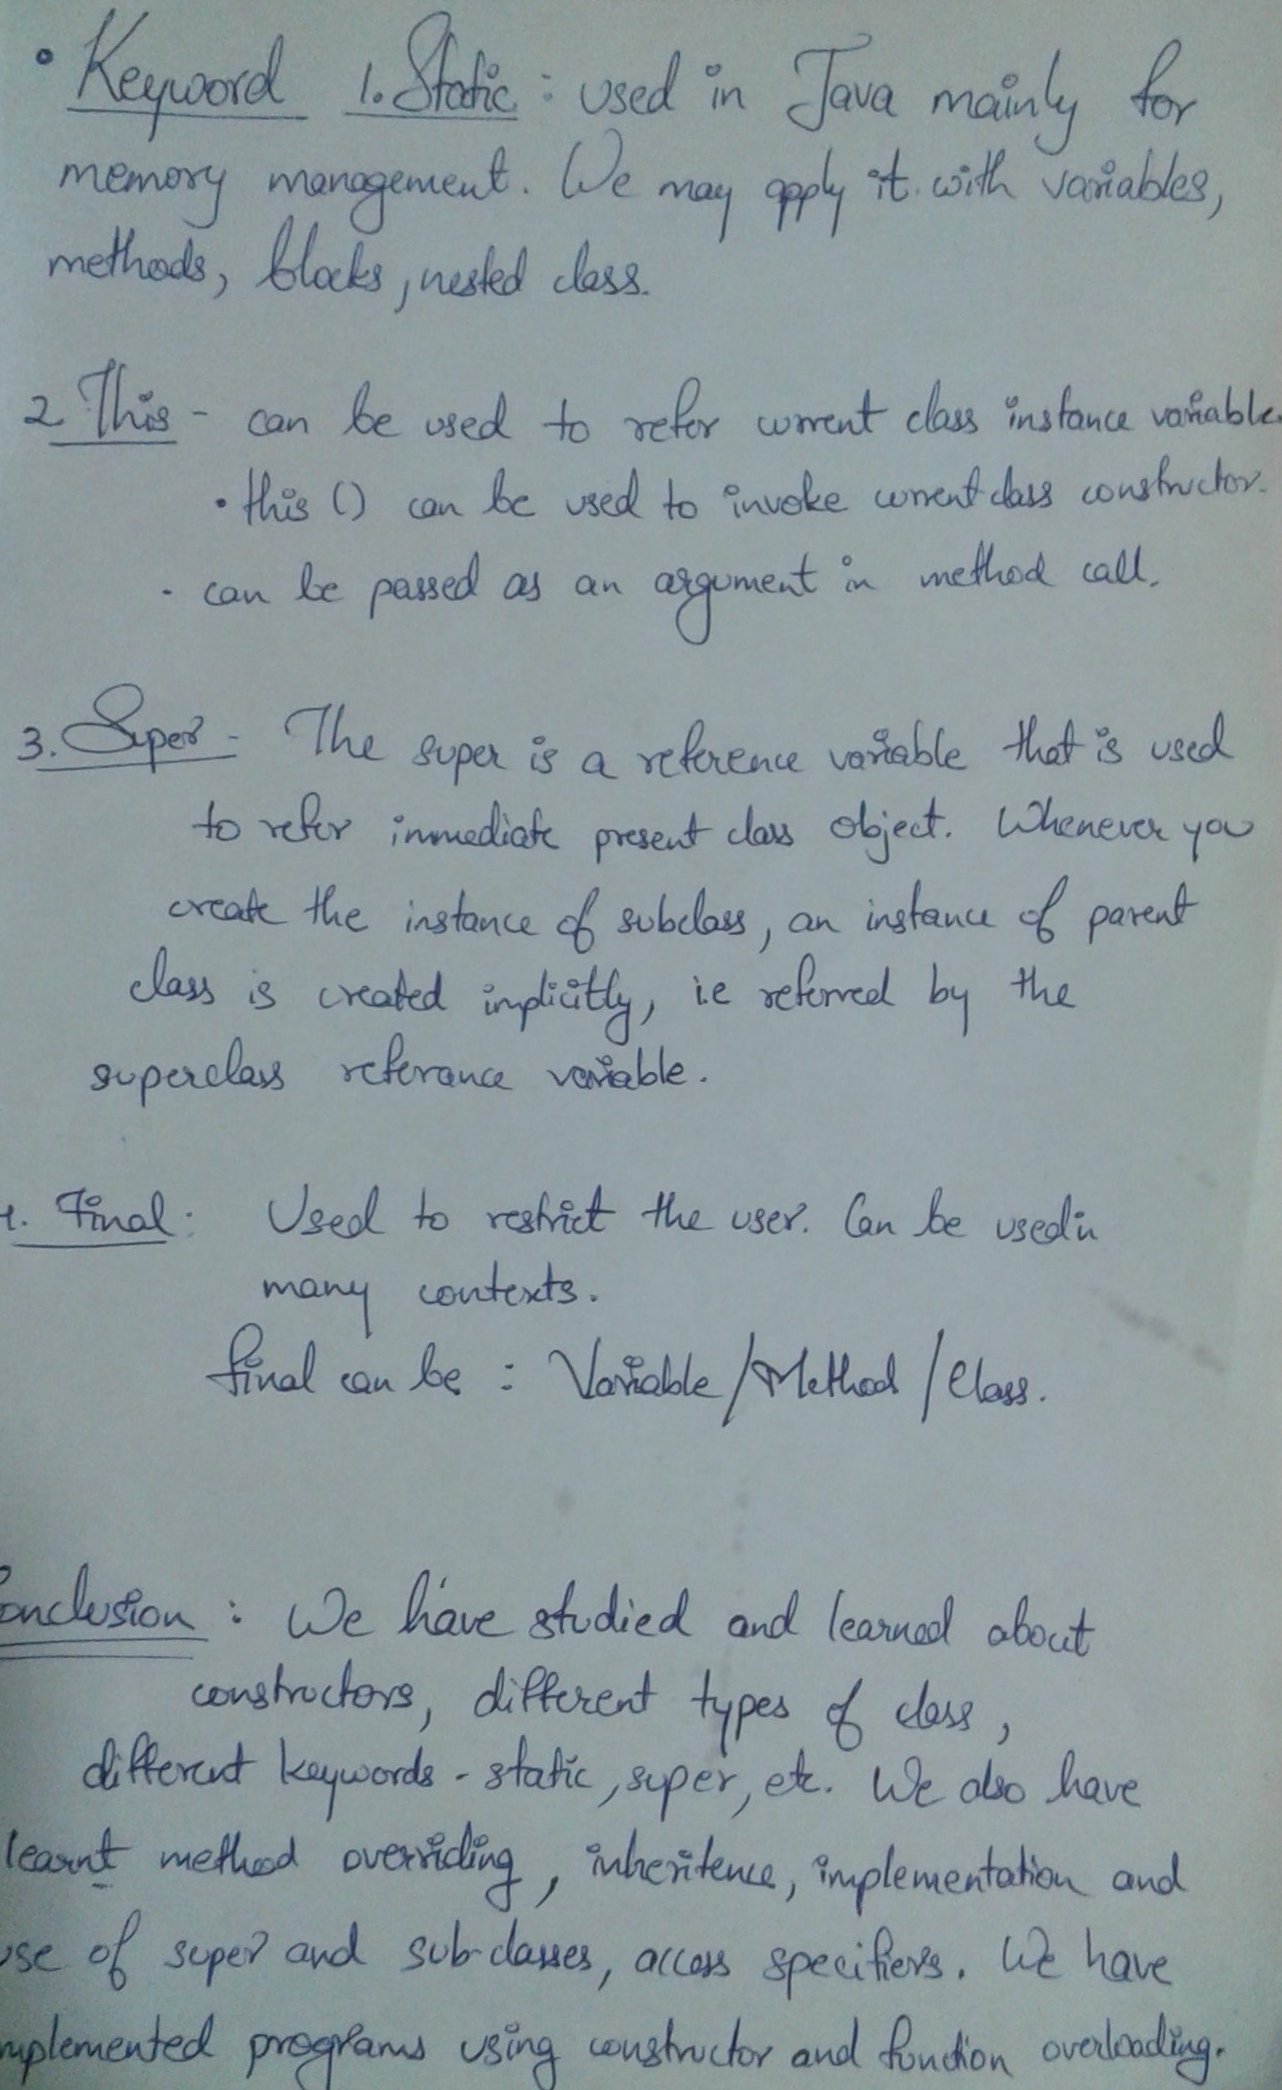 • Keyword 1. Static : used in Java mainly for
memory management. We may apply it with variables,
methods, blocks, nested class.
2 This - can be used to refer current class instance variable.
• this () can be used to invoke current class constructor.
• can be passed as an argument in method call.
3. Super - The super is a reference variable that is used
to refer immediate present class object. Whenever you
create the instance of subclass, an instance of parent
class is created implicitly, i.e referred by the
superclass referance variable.
4. Final : Used to restrict the user. Can be used in
many contexts.
final can be : Variable / Method / Class.
Conclusion : We have studied and learned about
constructors, different types of class,
different keywords - static, super, etc. We also have
learnt method overriding, inheritence, implementation and
use of super and sub-classes, access specifiers. We have
implemented programs using constructor and function overloading.